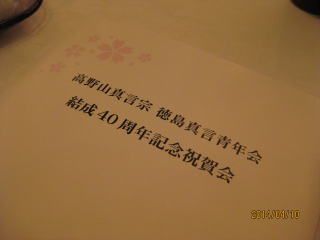 高野山真言宗 徳島真言青年会
結成40周年記念祝賀会
2014/04/10